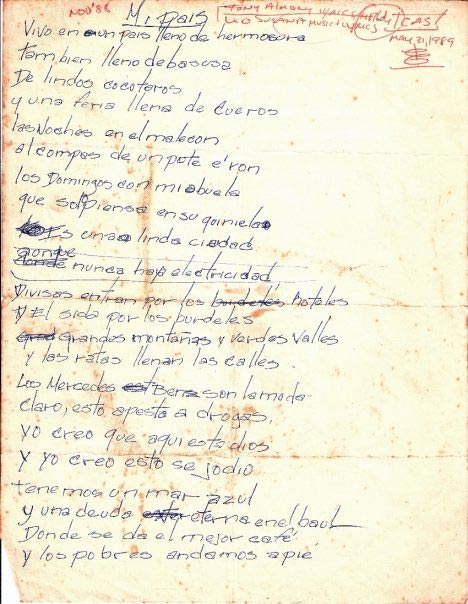 NOV '88
Mi pais
TONY ALMONT LYRICS
LEO SUSANA MUSIC + LYRICS
CAS
MAY 31, 1989
Vivo en un pais lleno de hermosura
tambien lleno de basusa
De lindos cocoteros
y una feria llena de cueros
las Noches en el malecon
al compas de un pote e' ron
los Domingos con mi abuela
que solo piensa en su quiniela
Es una linda ciudad
aunque
donde nunca hay electricidad
Divisas entran por los burdeles Hoteles
y El sida por los burdeles
Grandes montañas y Verdes Valles
y las ratas llenan las calles.
Los Mercedes Benz son la moda
claro, esto apesta a drogas,
yo creo que aqui esta dios
y yo creo esto se jodio
tenemos un mar azul
y una deuda eterna en el baul
Donde se da el mejor café
y los pobres andamos a pié